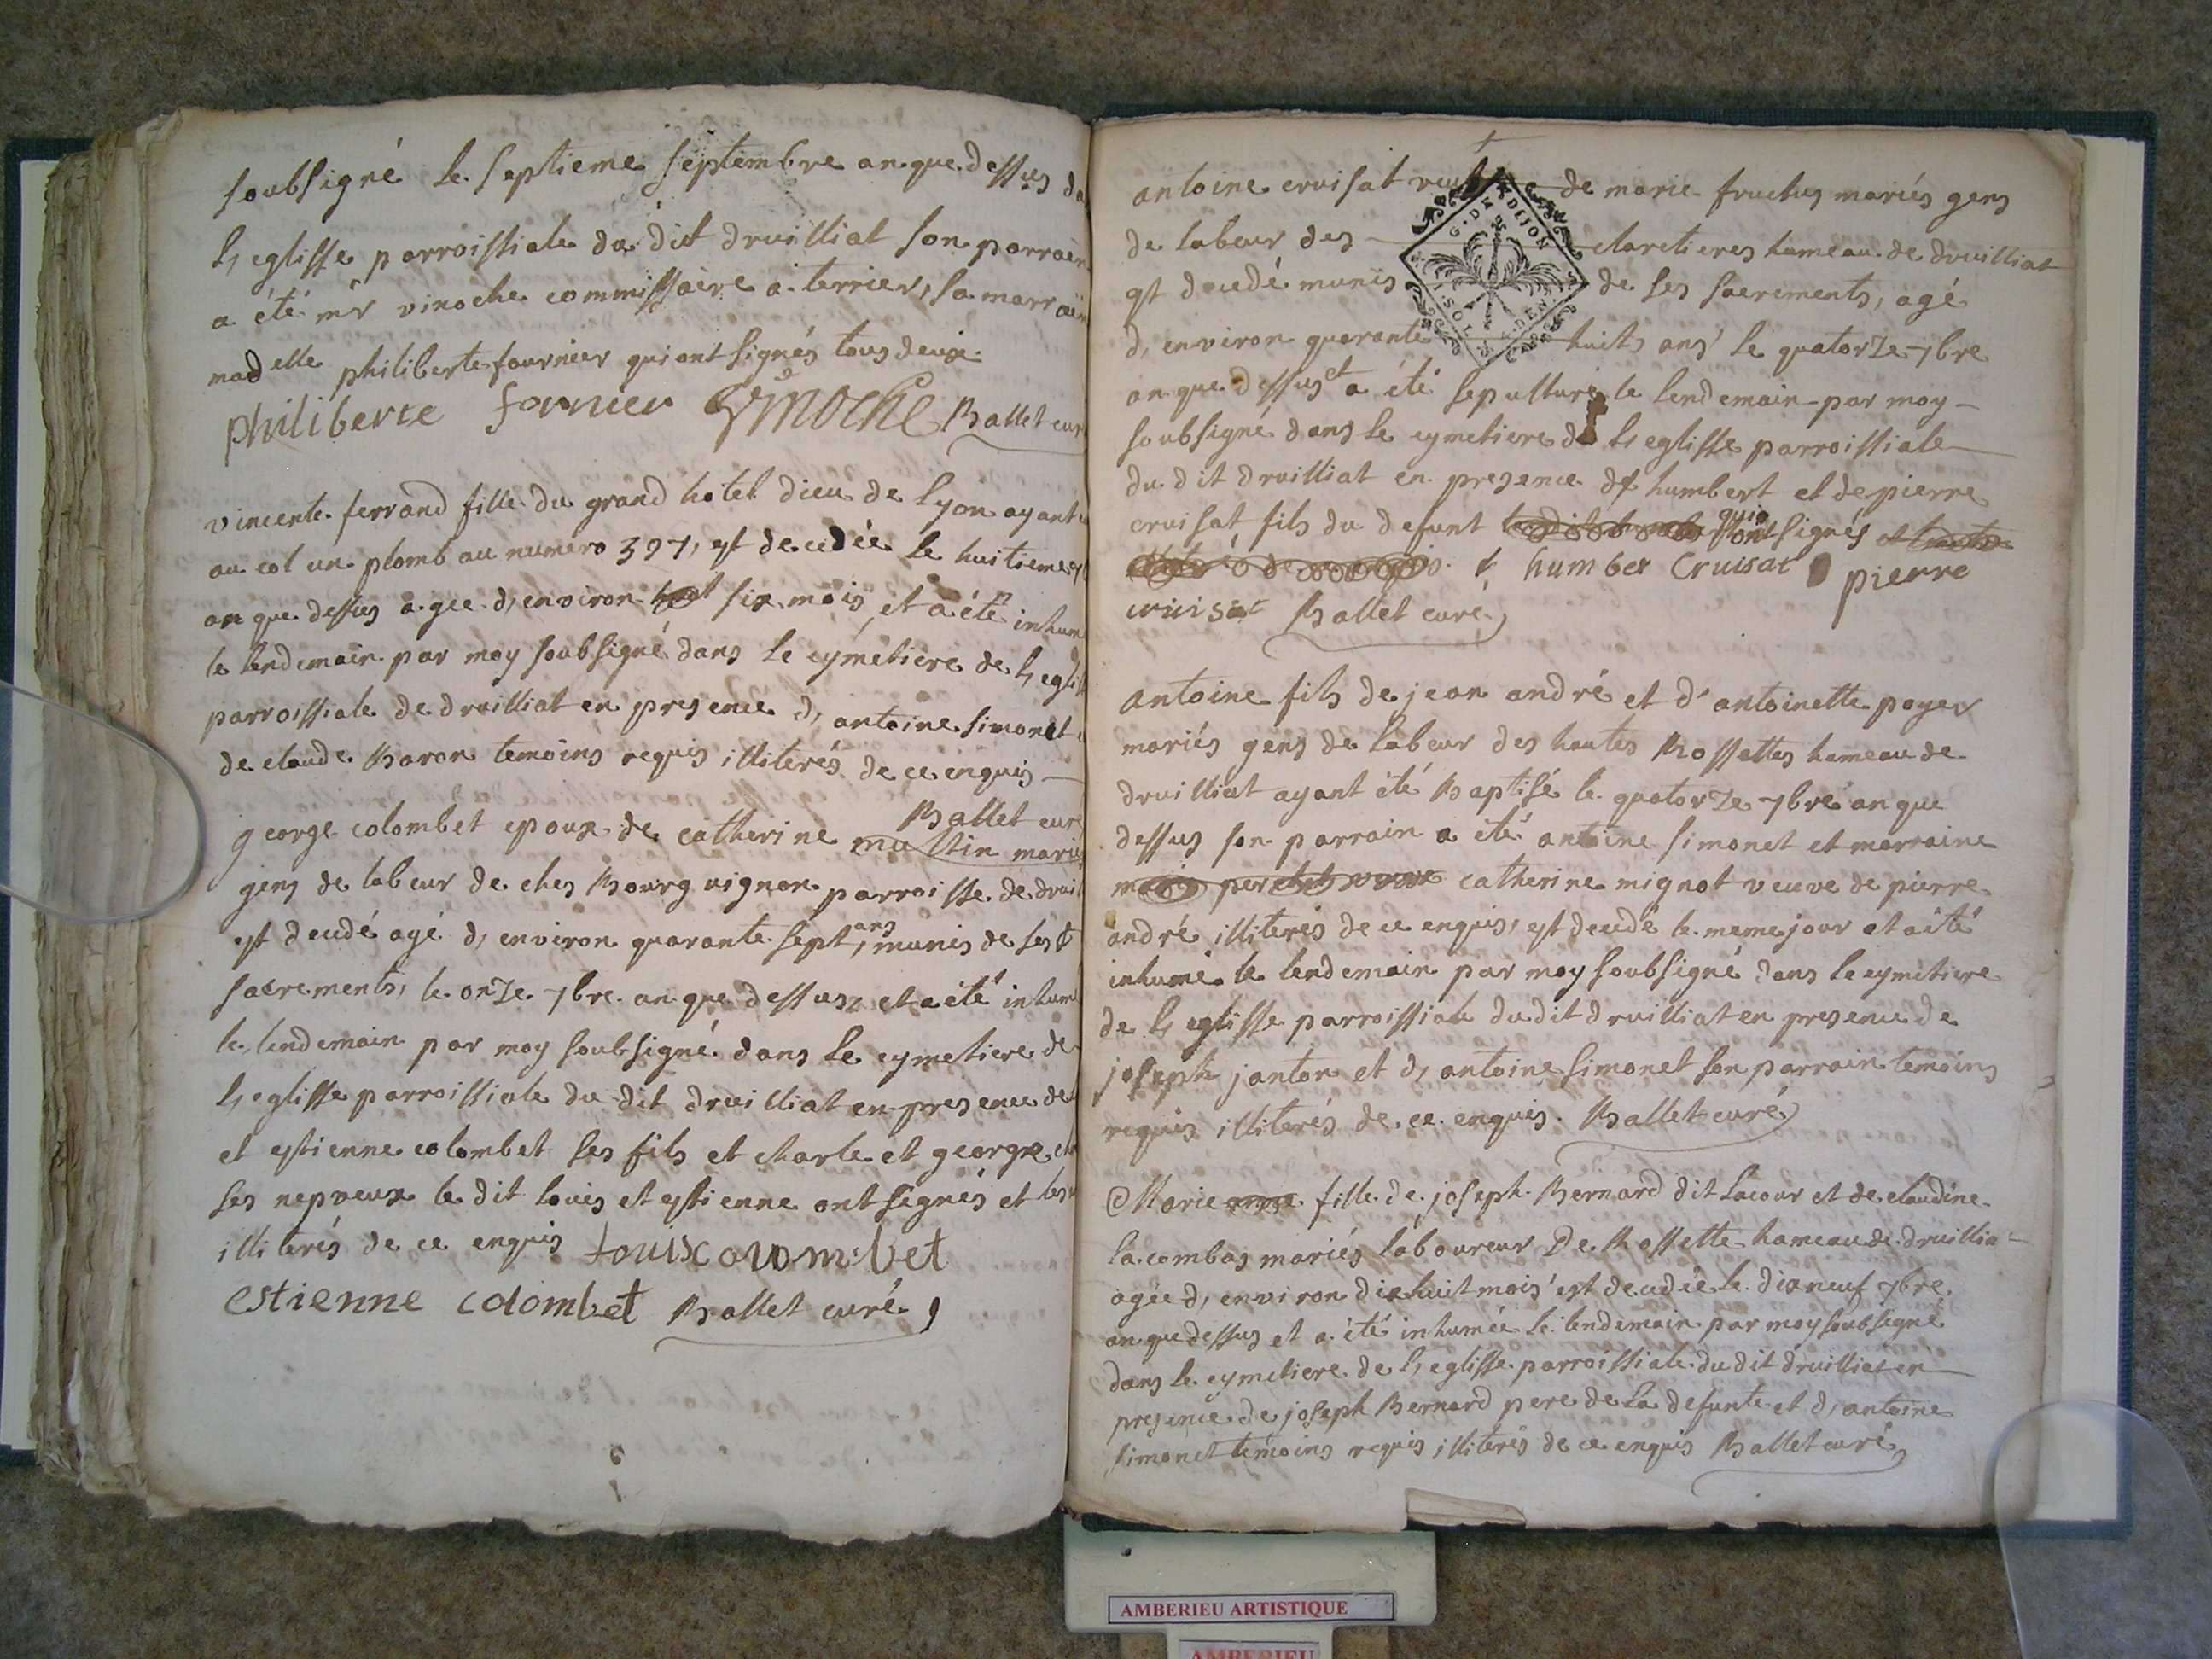 soubsigné le septieme septembre an que dessus da
l'eglisse parroissiale du dit druilliat son parrain
a été mr vinoche commissaire a terrier, sa marrain
madelle philiberte fournier qui ont signés tous deux
philiberte fornier Ballet cur
vincente ferrand fille du grand hotel dieu de Lyon ayant
au col un plomb au numero 397, est decedée le huitieme
an que dessus agée d'environ six mois et a été inhum
le lendemain par moy soubsigné dans le cymetiere de l'eglis
parroissiale de druilliat en presence d'antoine simonet
de claude Baron temoins requis illiterés de ce enquis
Ballet curé
george colombet epoux de catherine martin mariés
gens de labeur de ches Bourguignon parroisse de druil
est decedé agé d'environ quarante sept ans, munis de ses
sacrements, le onze 7bre an que dessus, et a été inhumé
le lendemain par moy soubsigné dans le cymetiere de
l'eglisse parroissiale du dit druilliat en presence de
et estienne colombet ses fils et charle et george
ses nepveux le dit louis et estienne ont signés et les
illiterés de ce enquis Louis colombet
estienne colombet Ballet curé
antoine cruisat de marie fructus mariés gens
de labeur des claretieres hameau de druilliat
est decedé munis de ses sacrements, agé
d'environ quarante huit ans le quatorze 7bre
an que dessus et a été sepulturé le lendemain par moy
soubsigné dans le cymetiere de l'eglisse parroissiale
du dit druilliat en presence de humbert et de pierre
cruisat fils du defunt qui ont signés
humber Cruisat pierre
cruisat Ballet curé
G. DE DIJON
SOL
antoine fils de jean andré et d'antoinette poyer
mariés gens de labeur des hautes Rossettes hameau de
druilliat ayant été Baptisé le quatorze 7bre an que
dessus son parrain a été antoine simonet et marraine
catherine mignot veuve de pierre
andré illiterés de ce enquis, est decedé le meme jour et a été
inhumé le lendemain par moy soubsigné dans le cymetiere
de l'eglisse parroissiale du dit druilliat en presence de
joseph janton et d'antoine simonet son parrain temoins
requis illiterés de ce enquis. Ballet curé
Marie fille de joseph Bernard dit Lacour et de claudine
la combas mariés laboureur De Rossette hameau de druillia
agée d'environ dix huit mois est decedée le dix neuf 7bre
an que dessus et a été inhumée le lendemain par moy soubsigné
dans le cymetiere de l'eglisse parroissiale du dit druilliat en
presence de joseph Bernard pere de la defunte et d'antoine
simonet temoins requis illiterés de ce enquis Ballet curé
AMBERIEU ARTISTIQUE
AMBERIEU